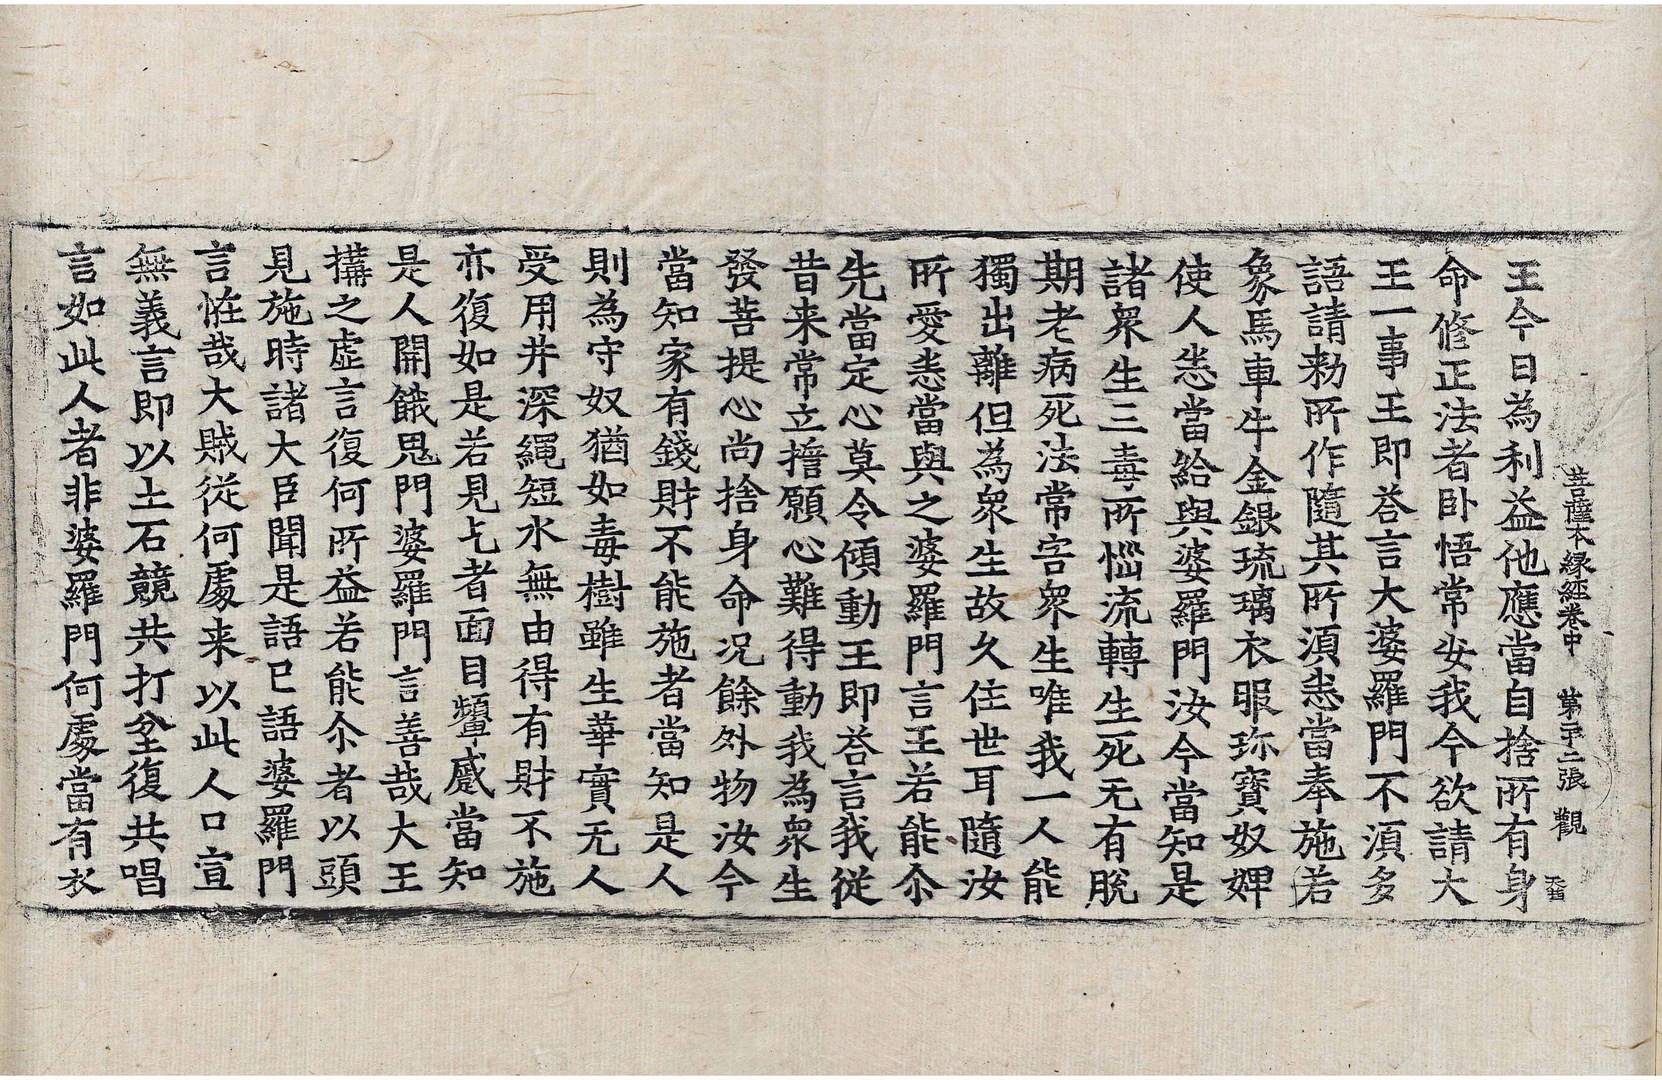 菩薩本緣經卷中 苐二十二張 觀
王今日為利益他應當自捨所有身
命修正法者卧悟常安我今欲請大
王一事王即荅言大婆羅門不湏多
語請勑所作隨其所湏悉當奉施若
象馬車牛金銀琉璃衣服珎寶奴婢
使人悉當給與婆羅門汝今當知是
諸衆生三毒所惱流轉生死无有脫
期老病死法常害衆生唯我一人能
獨出離但為衆生故久住世耳隨汝
所愛悉當與之婆羅門言王若能尒
先當定心莫令傾動王即荅言我從
昔来常立擔願心難得動我為衆生
發菩提心尚捨身命况餘外物汝今
當知家有錢財不能施者當知是人
則為守奴猶如毒樹雖生華實无人
受用井深繩短水無由得有財不施
亦復如是若見乞者面目顰蹙當知
是人開餓鬼門婆羅門言善哉大王
搆之虛言復何所益若能尒者以頭
見施時諸大臣聞是語已語婆羅門
言恠哉大賊從何處来以此人口宣
無義言即以土石競共打坌復共唱
言如此人者非婆羅門何處當有衣